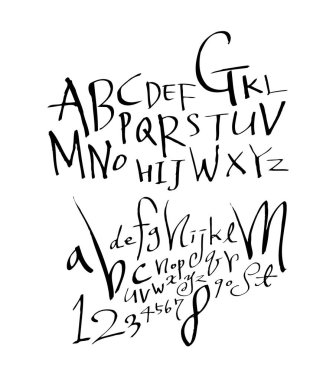 ABCDEFGKL
PQRSTUV
MNO HIJ WXYZ
ab defghijklm
c nop qr st
uvwxyz
1234567890